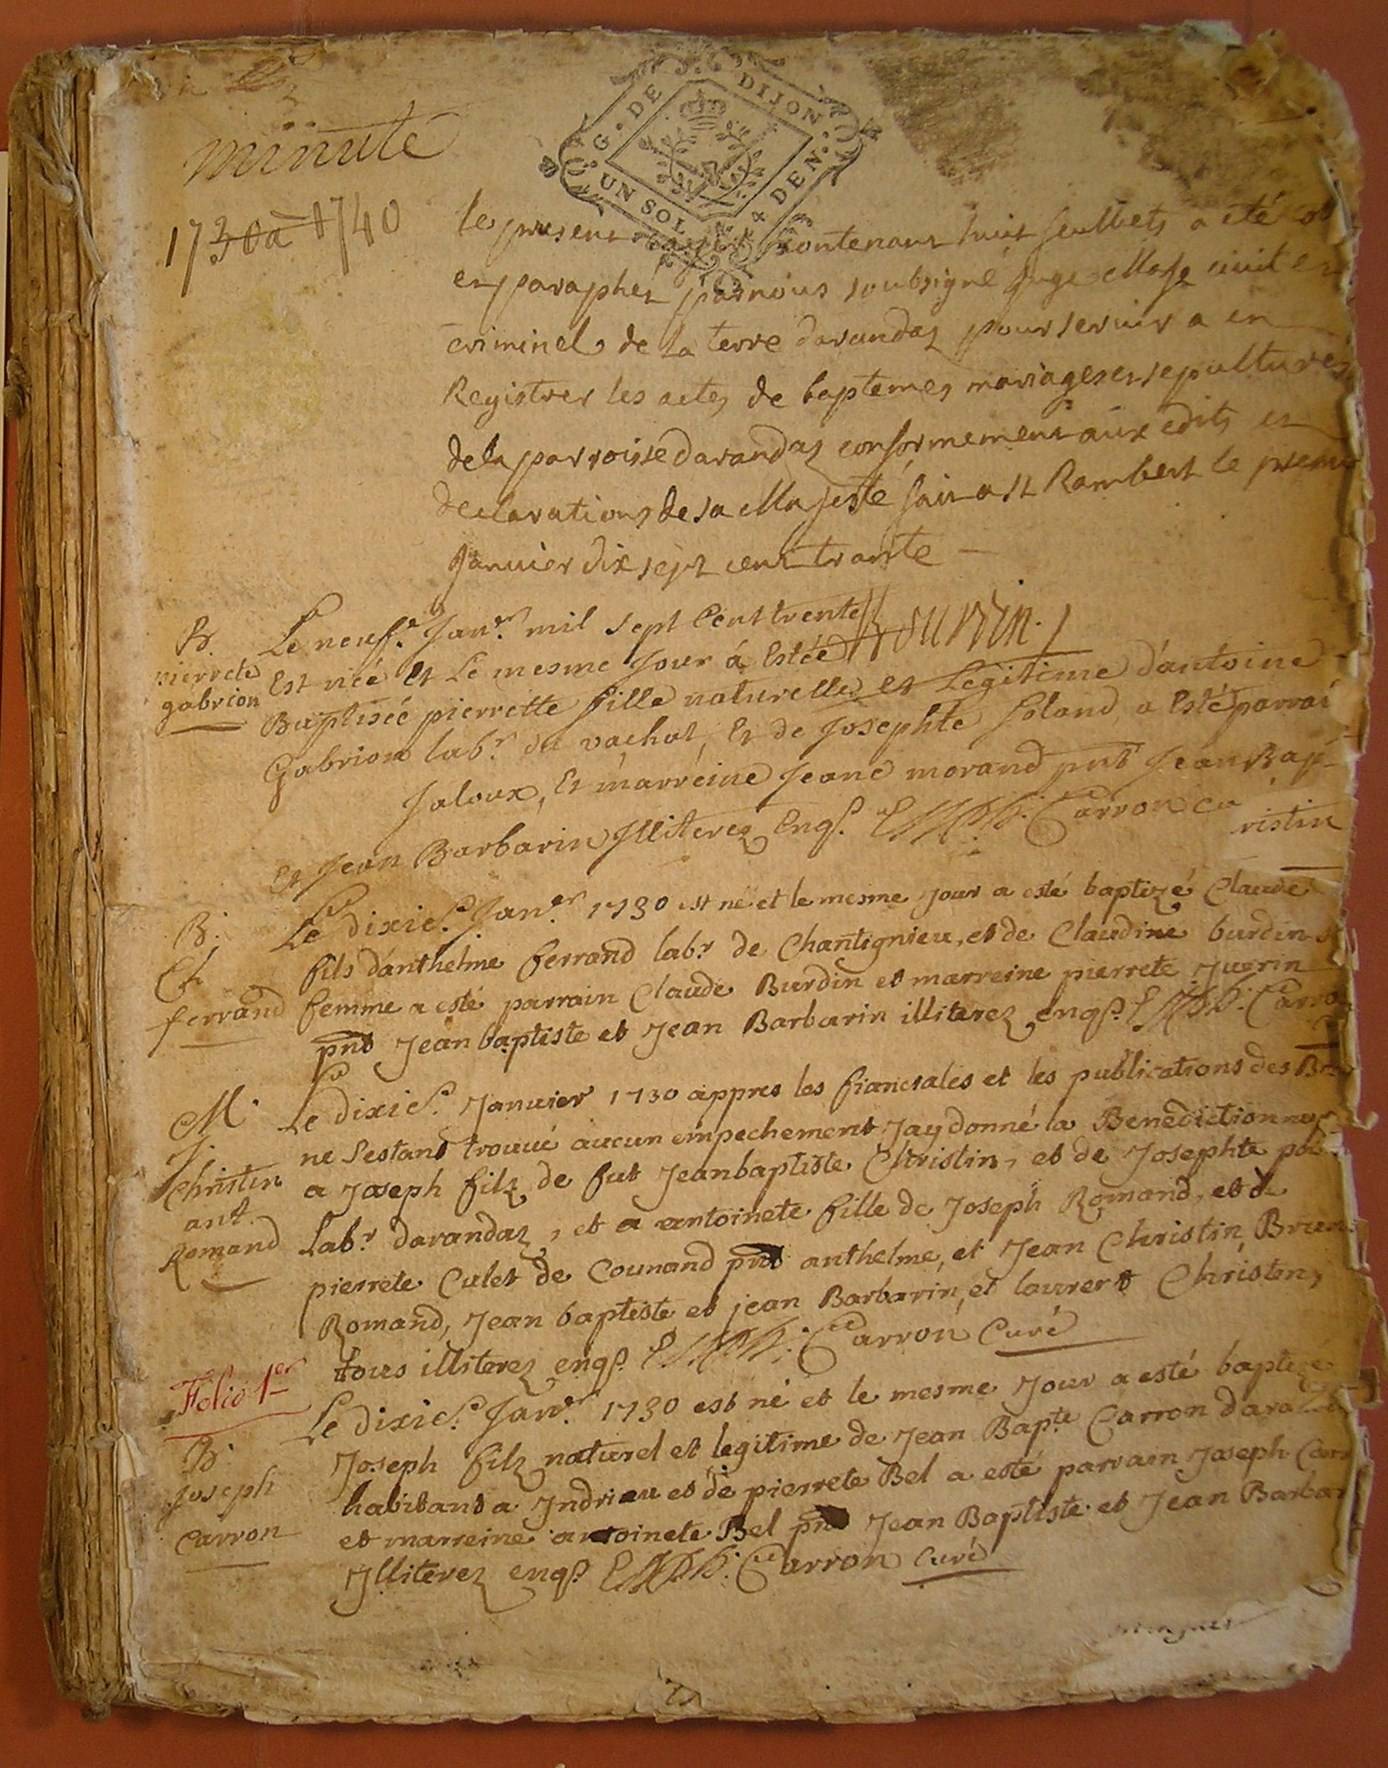 minute
1730 a 1740
G. DE DIJON.
UN SOL 4 DEN.
le present contenant huit feullets a été
et paraphez par nous soubsigné juge Maje civil et
criminel de la terre darandaz pour servir a en
Registrer les actes de baptemes mariages et sepultures
de la parroisse darandaz conformement aux edits et
declarations de sa Majesté fait a st Rambert le premier
Janvier dix sept cent trante
B.
pierrete
gabrion
Le neuf.e Janv.r mil sept Cent trente
Est née et Le mesme Jour á Estée
Baptisée pierrette fille naturelle et Legitime d'antoine
Gabrion lab.r du vachat, Et de Josephte Joland, a Esté parrai
Jaloux, Et marreine Jeane morand pnt Jean Bap
ristin
Et Jean Barbarin Illiterez Enq.s Carron cu
B.
Cl.
ferrand
Le dixie.e Jan.er 1730 est né et le mesme jour a esté baptizé Claude
fils d'anthelme ferrand lab.r de Chantignieu, et de Claudine burdin
femme a esté parrain Claude Burdin et marreine pierrete Juvrin
pnt Jean baptiste et Jean Barbarin illiterez enq.s Carro
M.
J.
Christin
ant.
Romand
Le dixie.e Janvier 1730 appres les fiancsales et les publications des
ne sestant trouué aucun empechement Jay donné la Benediction
a Joseph filz de fut Jean baptiste Christin, et de Josephte
Lab.r darandaz, et a antoinete fille de Joseph Romand, et de
pierrete Culet de Counand pnt anthelme, et Jean Christin,
Romand, Jean baptiste et jean Barbarin, et laurent Christin,
tous illiterez enq.s Carron Curé
Folio 1er
B.
Joseph
Carron
Le dixie.e Janv.r 1730 est né et le mesme Jour a esté baptizé
Joseph filz naturel et legitime de Jean Bap.te Carron
habitant a Indrieu et de pierrete Bel a esté parrain Joseph Carr
et marreine antoinete Bel pnt Jean Baptiste et Jean Barbar
Illiterez enq.s Carron Curé